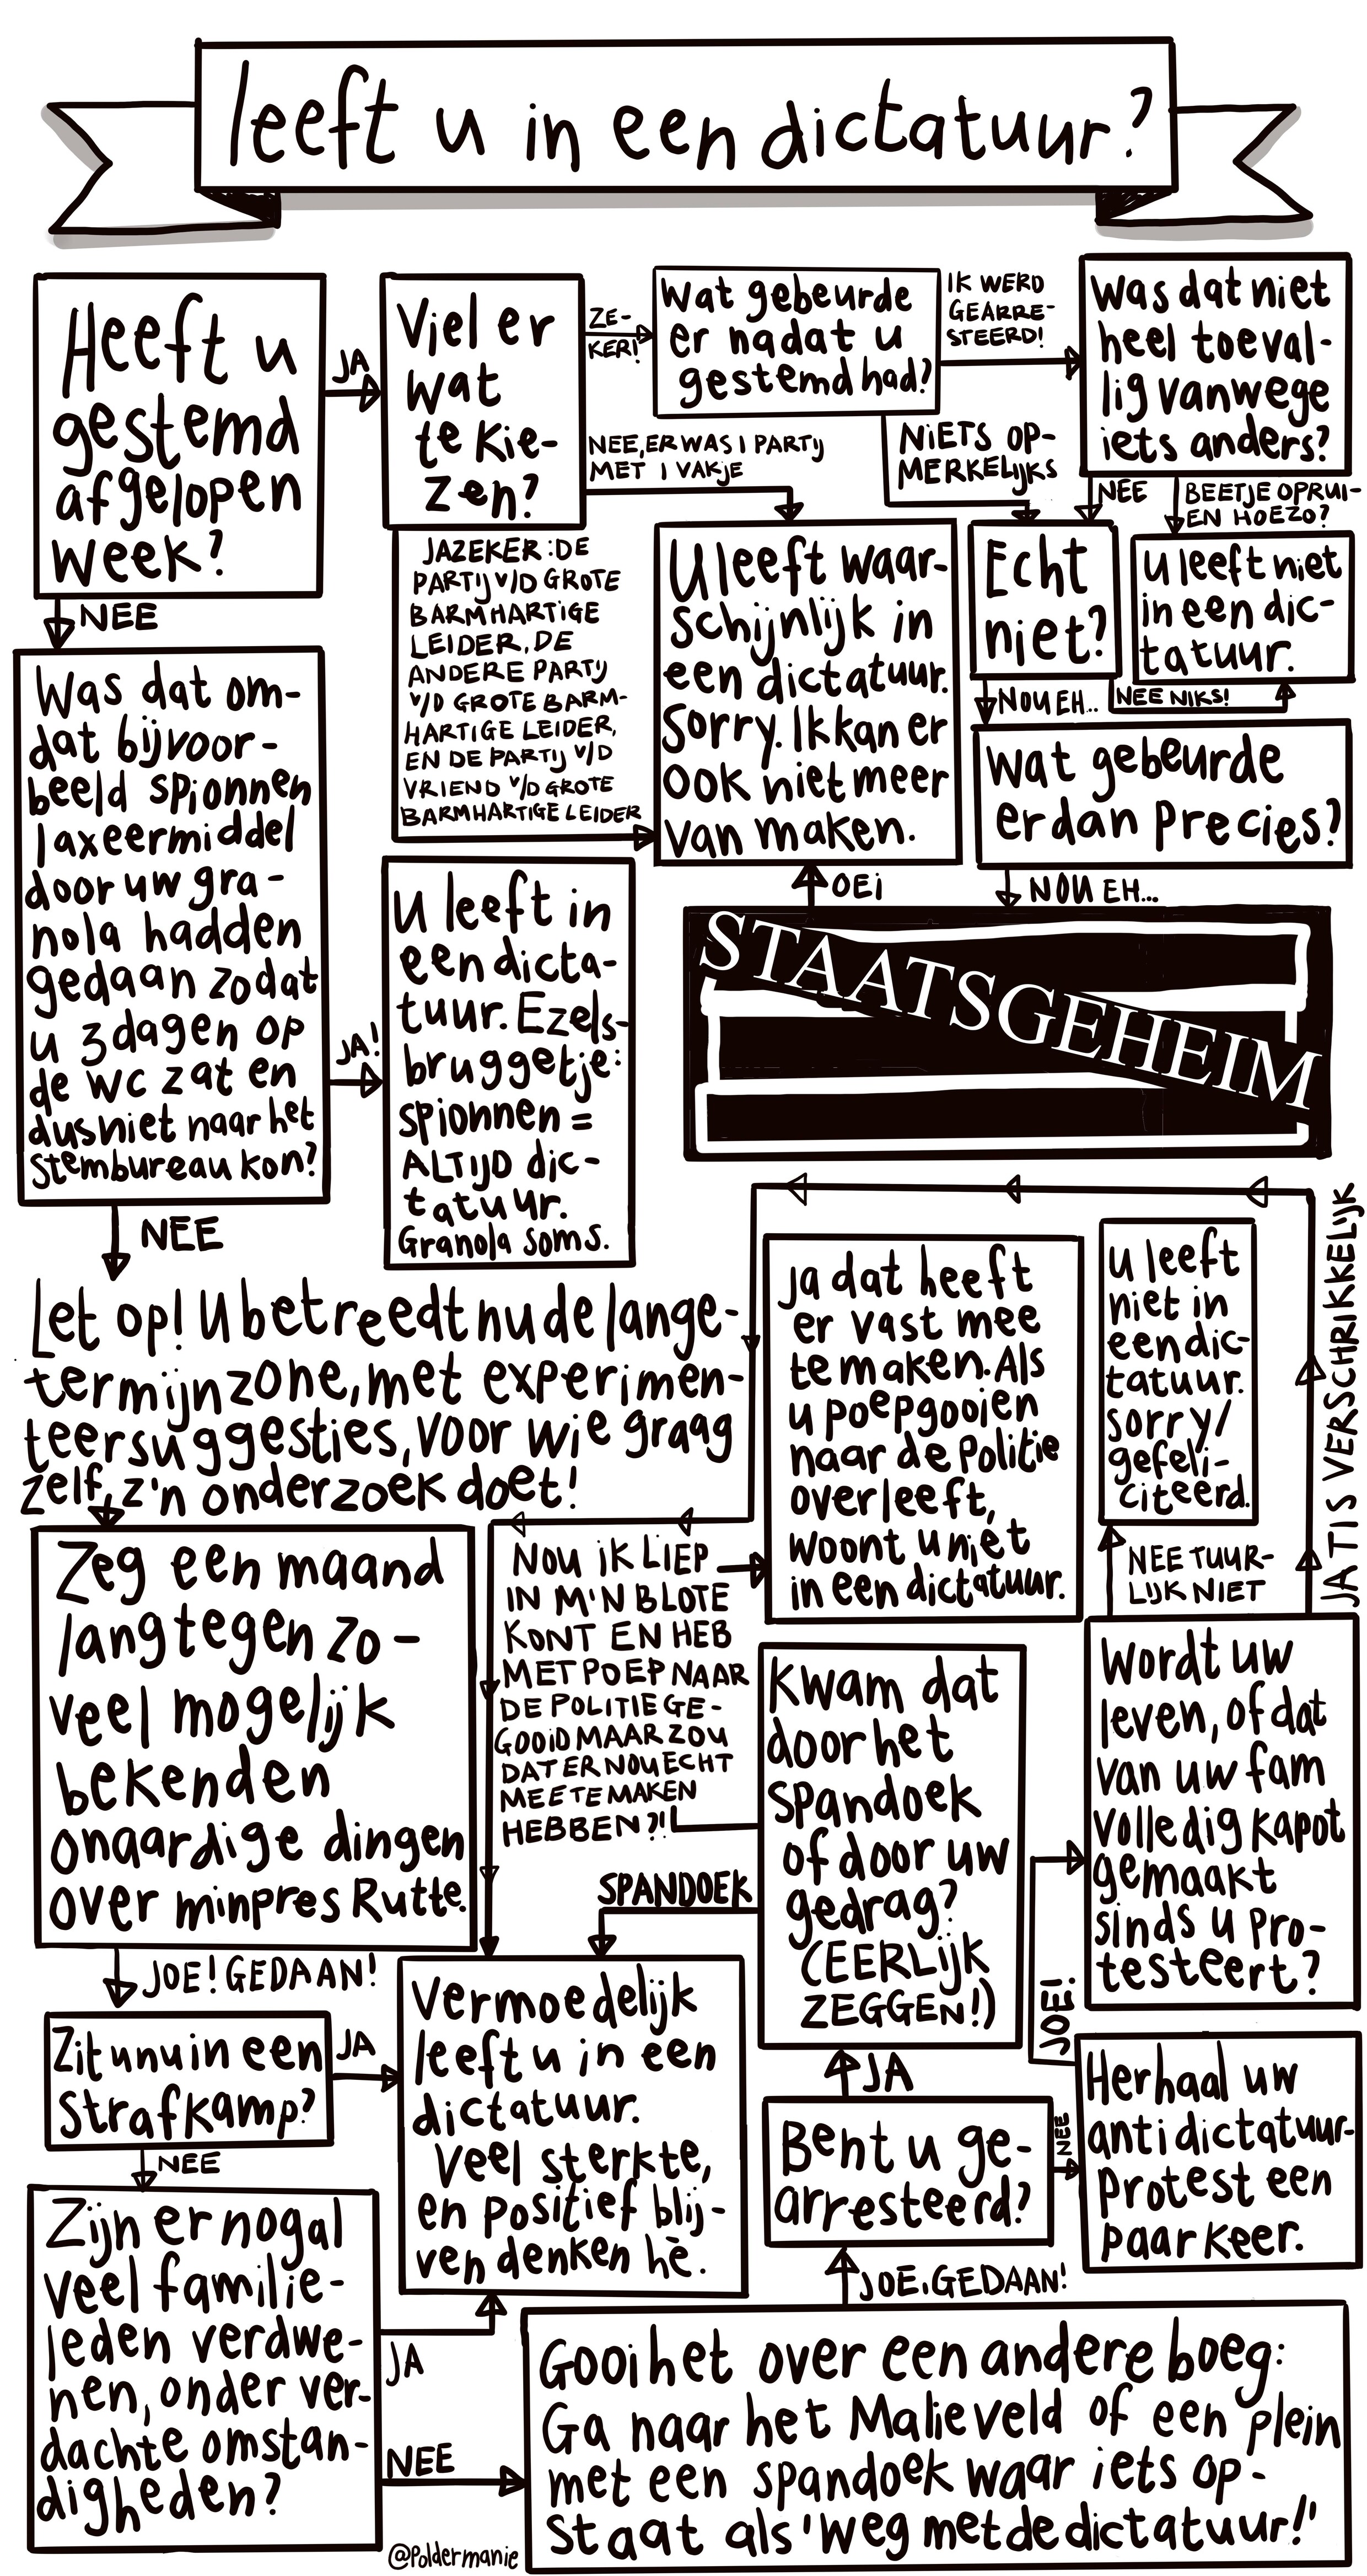 leeft u in een dictatuur?
Heeft u
gestemd
afgelopen
week?
JA
Viel er
wat
te kie-
zen?
ZE-
KER!
Wat gebeurde
er nadat u
gestemd had?
IK WERD
GEARRE-
STEERD!
Was dat niet
heel toeval-
lig vanwege
iets anders?
NEE, ER WAS 1 PARTIJ
MET 1 VAKJE
NIETS OP-
MERKELIJKS
NEE
BEETJE OPRUI-
EN HOEZO?
JAZEKER: DE
PARTIJ V/D GROTE
BARMHARTIGE
LEIDER, DE
ANDERE PARTIJ
V/D GROTE BARM-
HARTIGE LEIDER,
EN DE PARTIJ V/D
VRIEND V/D GROTE
BARMHARTIGE LEIDER
U leeft waar-
schijnlijk in
een dictatuur.
Sorry. Ik kan er
ook niet meer
van maken.
Echt
niet?
U leeft niet
in een dic-
tatuur.
NOU EH...
NEE NIKS!
Wat gebeurde
er dan precies?
NOU EH...
OEI
STAATSGEHEIM
NEE
Was dat om-
dat bijvoor-
beeld spionnen
laxeermiddel
door uw gra-
nola hadden
gedaan zodat
u 3 dagen op
de wc zat en
dus niet naar het
stembureau kon?
JA!
U leeft in
een dicta-
tuur. Ezels-
bruggetje:
spionnen =
ALTIJD dic-
tatuur.
Granola soms.
NEE
Let op! U betreedt nu de lange-
termijnzone, met experimen-
teersuggesties, voor wie graag
zelf z'n onderzoek doet!
Zeg een maand
lang tegen zo-
veel mogelijk
bekenden
onaardige dingen
over minpres Rutte.
JOE! GEDAAN!
Zit u nu in een
strafkamp?
JA
NEE
Zijn er nogal
veel familie-
leden verdwe-
nen, onder ver-
dachte omstan-
digheden?
JA
NEE
Vermoedelijk
leeft u in een
dictatuur.
Veel sterkte,
en positief blij-
ven denken hè.
Gooi het over een andere boeg:
Ga naar het Malieveld of een plein
met een spandoek waar iets op-
staat als 'weg met de dictatuur!'
JOE, GEDAAN!
Bent u ge-
arresteerd?
JA
NEE
Kwam dat
door het
spandoek
of door uw
gedrag?
(EERLIJK
ZEGGEN!)
SPANDOEK
NOU IK LIEP
IN M'N BLOTE
KONT EN HEB
MET POEP NAAR
DE POLITIE GE-
GOOID MAAR ZOU
DAT ER NOU ECHT
MEE TE MAKEN
HEBBEN?!
Ja dat heeft
er vast mee
te maken. Als
u poepgooien
naar de politie
overleeft,
woont u niet
in een dictatuur.
Herhaal uw
antidictatuur-
protest een
paar keer.
JOE!
Wordt uw
leven, of dat
van uw fam
volledig kapot
gemaakt
sinds u pro-
testeert?
NEE TUUR-
LIJK NIET
U leeft
niet in
een dic-
tatuur.
sorry/
gefeli-
citeerd.
JA TIS VERSCHRIKKELIJK
@Poldermanie